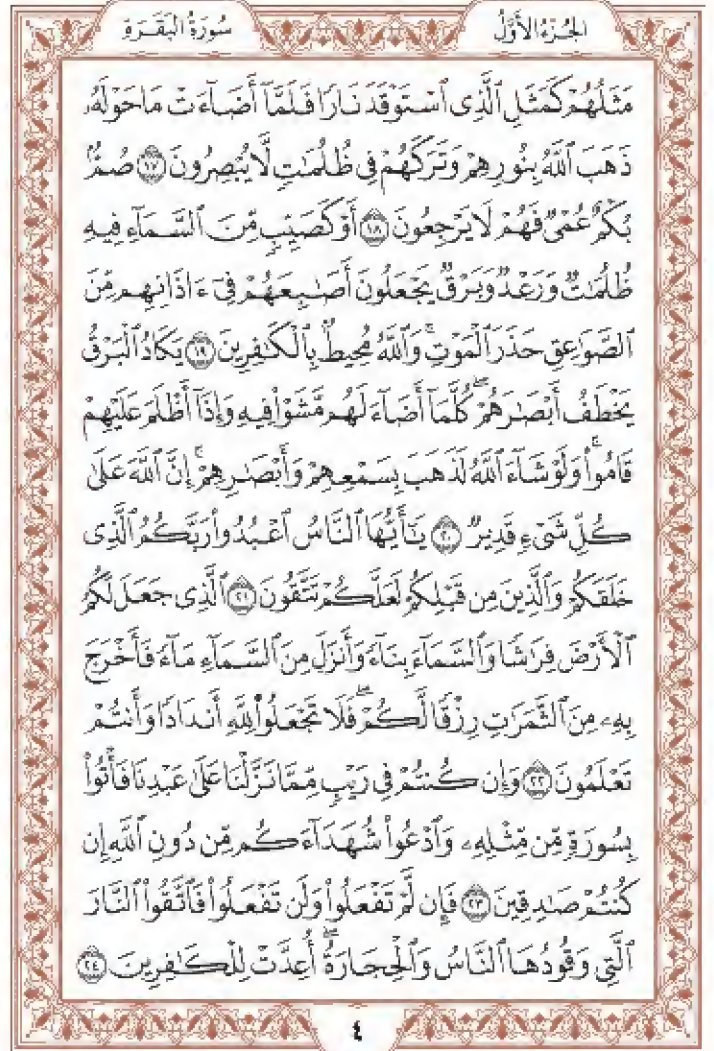 الجُزْءُ الأَوَّلُ
سُورَةُ البَقَرَةِ
مَثَلُهُمْ كَمَثَلِ ٱلَّذِى ٱسْتَوْقَدَ نَارًا فَلَمَّآ أَضَآءَتْ مَا حَوْلَهُۥ
ذَهَبَ ٱللَّهُ بِنُورِهِمْ وَتَرَكَهُمْ فِى ظُلُمَـٰتٍ لَّا يُبْصِرُونَ ١٧ صُمٌّۢ
بُكْمٌ عُمْىٌ فَهُمْ لَا يَرْجِعُونَ ١٨ أَوْ كَصَيِّبٍ مِّنَ ٱلسَّمَآءِ فِيهِ
ظُلُمَـٰتٌ وَرَعْدٌ وَبَرْقٌ يَجْعَلُونَ أَصَـٰبِعَهُمْ فِىٓ ءَاذَانِهِم مِّنَ
ٱلصَّوَٰعِقِ حَذَرَ ٱلْمَوْتِ ۚ وَٱللَّهُ مُحِيطٌۢ بِٱلْكَـٰفِرِينَ ١٩ يَكَادُ ٱلْبَرْقُ
يَخْطَفُ أَبْصَـٰرَهُمْ ۖ كُلَّمَآ أَضَآءَ لَهُم مَّشَوْا۟ فِيهِ وَإِذَآ أَظْلَمَ عَلَيْهِمْ
قَامُوا۟ ۚ وَلَوْ شَآءَ ٱللَّهُ لَذَهَبَ بِسَمْعِهِمْ وَأَبْصَـٰرِهِمْ ۚ إِنَّ ٱللَّهَ عَلَىٰ
كُلِّ شَىْءٍ قَدِيرٌ ٢٠ يَـٰٓأَيُّهَا ٱلنَّاسُ ٱعْبُدُوا۟ رَبَّكُمُ ٱلَّذِى
خَلَقَكُمْ وَٱلَّذِينَ مِن قَبْلِكُمْ لَعَلَّكُمْ تَتَّقُونَ ٢١ ٱلَّذِى جَعَلَ لَكُمُ
ٱلْأَرْضَ فِرَٰشًا وَٱلسَّمَآءَ بِنَآءً وَأَنزَلَ مِنَ ٱلسَّمَآءِ مَآءً فَأَخْرَجَ
بِهِۦ مِنَ ٱلثَّمَرَٰتِ رِزْقًا لَّكُمْ ۖ فَلَا تَجْعَلُوا۟ لِلَّهِ أَندَادًا وَأَنتُمْ
تَعْلَمُونَ ٢٢ وَإِن كُنتُمْ فِى رَيْبٍ مِّمَّا نَزَّلْنَا عَلَىٰ عَبْدِنَا فَأْتُوا۟
بِسُورَةٍ مِّن مِّثْلِهِۦ وَٱدْعُوا۟ شُهَدَآءَكُم مِّن دُونِ ٱللَّهِ إِن
كُنتُمْ صَـٰدِقِينَ ٢٣ فَإِن لَّمْ تَفْعَلُوا۟ وَلَن تَفْعَلُوا۟ فَٱتَّقُوا۟ ٱلنَّارَ
ٱلَّتِى وَقُودُهَا ٱلنَّاسُ وَٱلْحِجَارَةُ ۖ أُعِدَّتْ لِلْكَـٰفِرِينَ ٢٤
٤